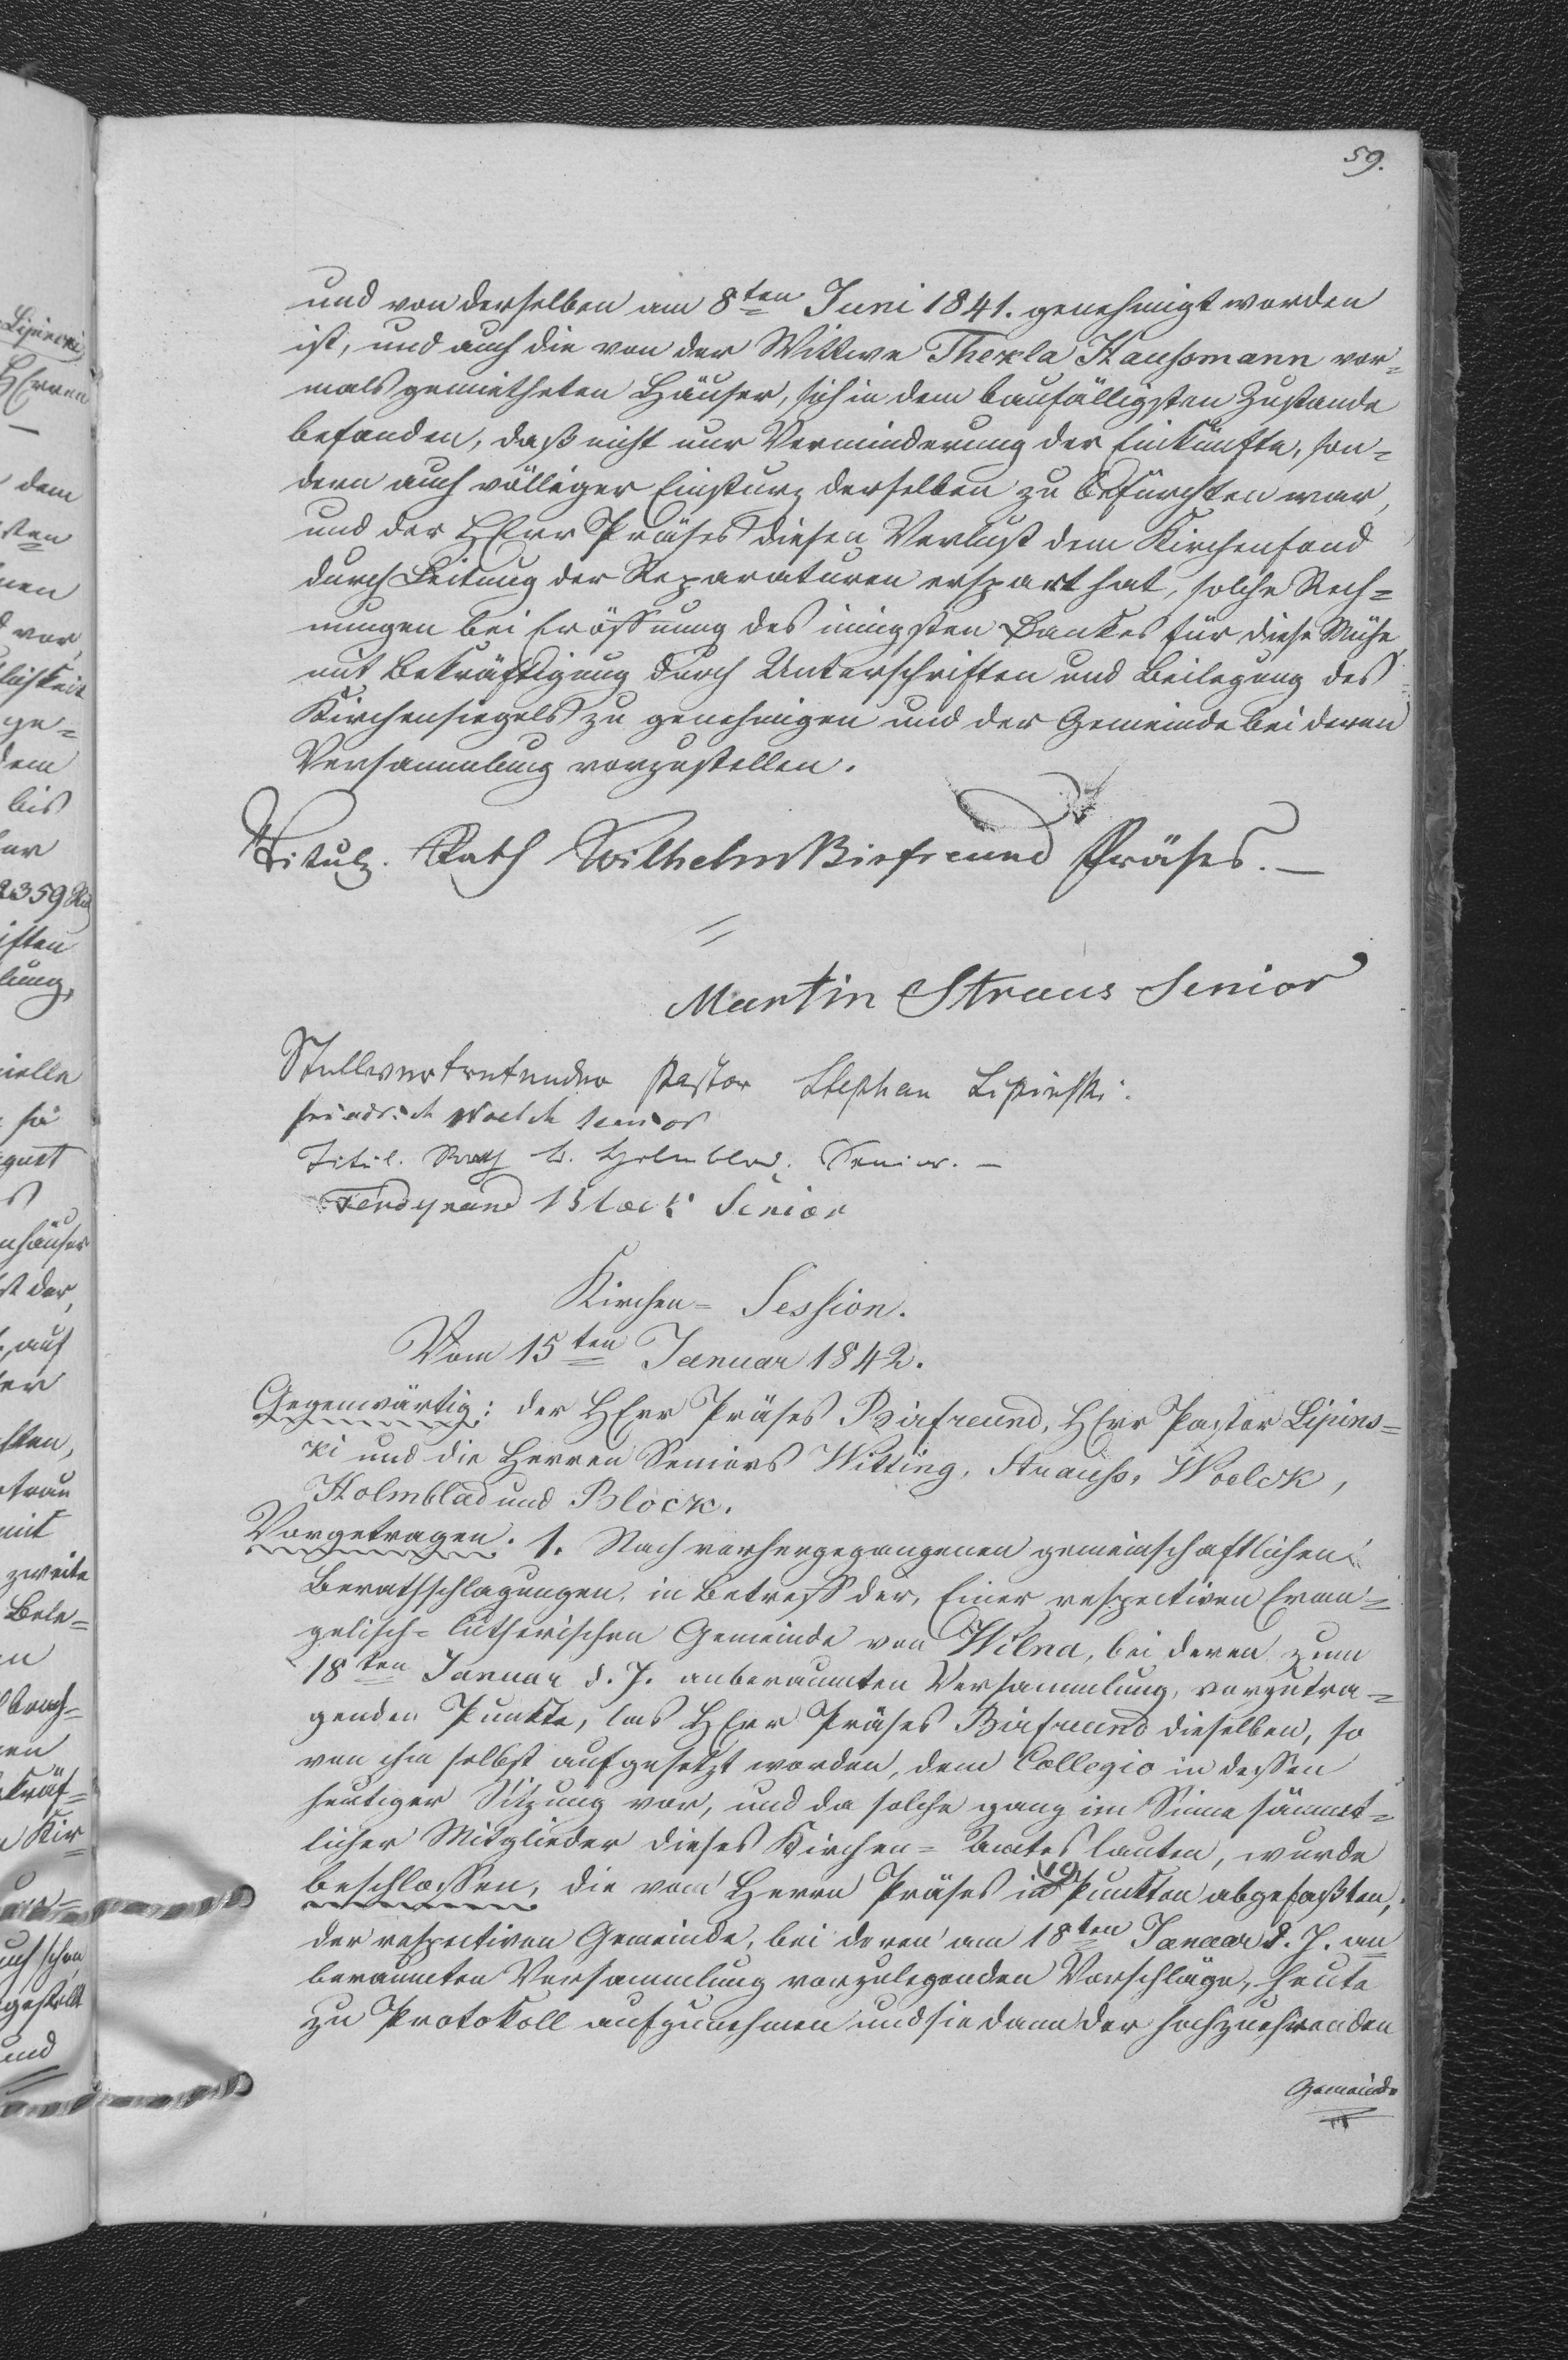 59.
und von derselben am 8ten Juni 1841. genehmigt worden
ist, und auch die von der Wittwe Thekla Haußmann vor-
mals gemietheten Häuser, sich in dem baufälligsten Zustande
befanden, daß nicht nur Verminderung der Einkünfte, son-
dern auch völliger Einsturz derselben zu befürchten war,
und der HErr Präses diesen Verlust dem Kirchenfond
durch Leitung der Reparaturen erspart hat, solche Rech-
nungen bei Eröffnung des innigsten Dankes für diese Mühe
mit Bekräftigung durch Unterschriften und Beilegung des
Kirchensiegels zu genehmigen und der Gemeinde bei deren
Versammlung vorzustellen.
Titulr. Rath Wilhelm Birfreund Präses.
Martin Straus Senior
Stellvertretender Pastor Stephan Lipinski.
Friedrich Woelck Senior
Titul. Rath Holmblad. Senior.
Ferdynand Block Senior
Kirchen-Session.
Vom 15ten Januar 1842.
Gegenwärtig: der HErr Präses Birfreund, HErr Pastor Lipins-
ki und die Herren Seniors Witting, Strauß, Woelck,
Holmblad und Block.
Vorgetragen. 1. Nach vorhergegangenen gemeinschaftlichen
Berathschlagungen, in Betreff der, Einer respectiven Evan-
gelisch-lutherischen Gemeinde von Wilna, bei deren zum
18ten Januar d. J. anberaumten Versammlung, vorzutra-
genden Punkte, las HErr Präses Birfreund dieselben, so
von ihm selbst aufgesetzt worden, dem Collegio in dessen
heutiger Sitzung vor, und da solche ganz im Sinne sämmt-
licher Mitglieder dieses Kirchen-Amtes lauten, wurde
beschlossen, die vom Herrn Präses in 10 Punkten abgefaßten,
der respectiven Gemeinde, bei deren am 18ten Januar d. J. an
beraumten Versammlung vorzulegenden Vorschläge, heute
zu Protokoll aufzunehmen und sie dann der hochzuehrenden
Gemeinde